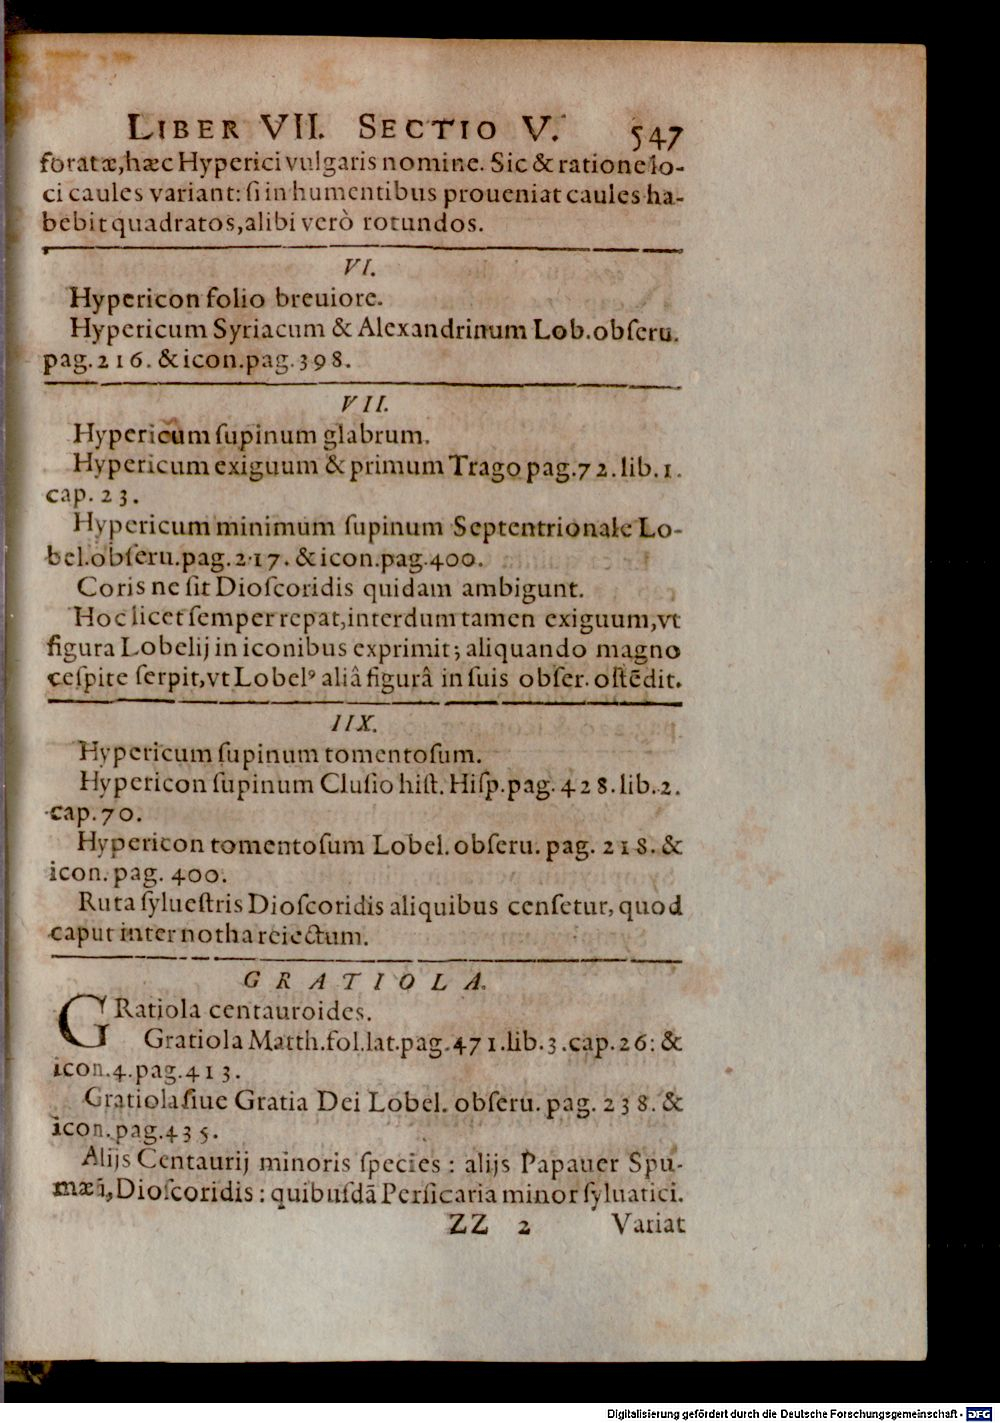 LIBER VII. SECTIO V. 547
foratæ, hæc Hyperici vulgaris nomine. Sic & ratione lo-
ci caules variant: ſi in humentibus proueniat caules ha-
bebit quadratos, alibi verò rotundos.
VI.
Hypericon folio breuiore.
Hypericum Syriacum & Alexandrinum Lob. obſeru.
pag. 216. & icon. pag. 398.
VII.
Hypericum ſupinum glabrum.
Hypericum exiguum & primum Trago pag. 72. lib. 1.
cap. 23.
Hypericum minimum ſupinum Septentrionale Lo-
bel. obſeru. pag. 217. & icon. pag. 400.
Coris ne ſit Dioſcoridis quidam ambigunt.
Hoc licet ſemper repat, interdum tamen exiguum, vt
figura Lobelij in iconibus exprimit; aliquando magno
ceſpite ſerpit, vt Lobelꝰ aliâ figurâ in ſuis obſer. oſtẽdit.
IIX.
Hypericum ſupinum tomentoſum.
Hypericon ſupinum Cluſio hiſt. Hiſp. pag. 428. lib. 2.
cap. 70.
Hypericon tomentoſum Lobel. obſeru. pag. 218. &
icon. pag. 400.
Ruta ſylueſtris Dioſcoridis aliquibus cenſetur, quod
caput inter notha reiectum.
GRATIOLA.
GRatiola centauroides.
Gratiola Matth. fol. lat. pag. 471. lib. 3. cap. 26: &
icon. 4. pag. 413.
Gratiola ſiue Gratia Dei Lobel. obſeru. pag. 238. &
icon. pag. 435.
Alijs Centaurij minoris ſpecies: alijs Papauer Spu-
Dioſcoridis: quibuſdã Perſicaria minor ſyluatici.
ZZ 2 Variat
Digitalisierung gefördert durch die Deutsche Forschungsgemeinschaft - DFG